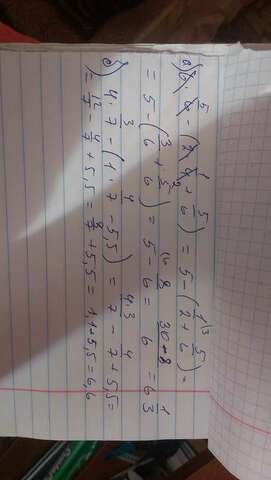 а) 6 · 5/6 − (2 · 1/4 + 5/6) = 5 − (1/2 + 5/6) =
= 5 − (3/6 + 5/6) = 5 − 8/6 = (30+8)/6 = 6 1/3
в) 4 · 3/7 − (1 · 4/7 − 5,5) = 4·3/7 − 4/7 + 5,5 =
= 12/7 − 4/7 + 5,5 = 8/7 + 5,5 = 1,1 + 5,5 = 6,6